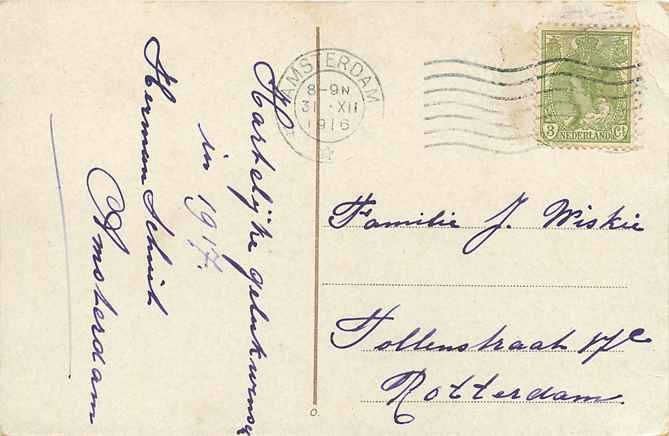 Hartelijke gelukwensch
in 1917.
Herman Schuit
Amsterdam
AMSTERDAM
8-9N
31.XII
1916
3 Ct
NEDERLAND
Familie J. Wiskie
Tollenstraat 17c
Rotterdam.
O.